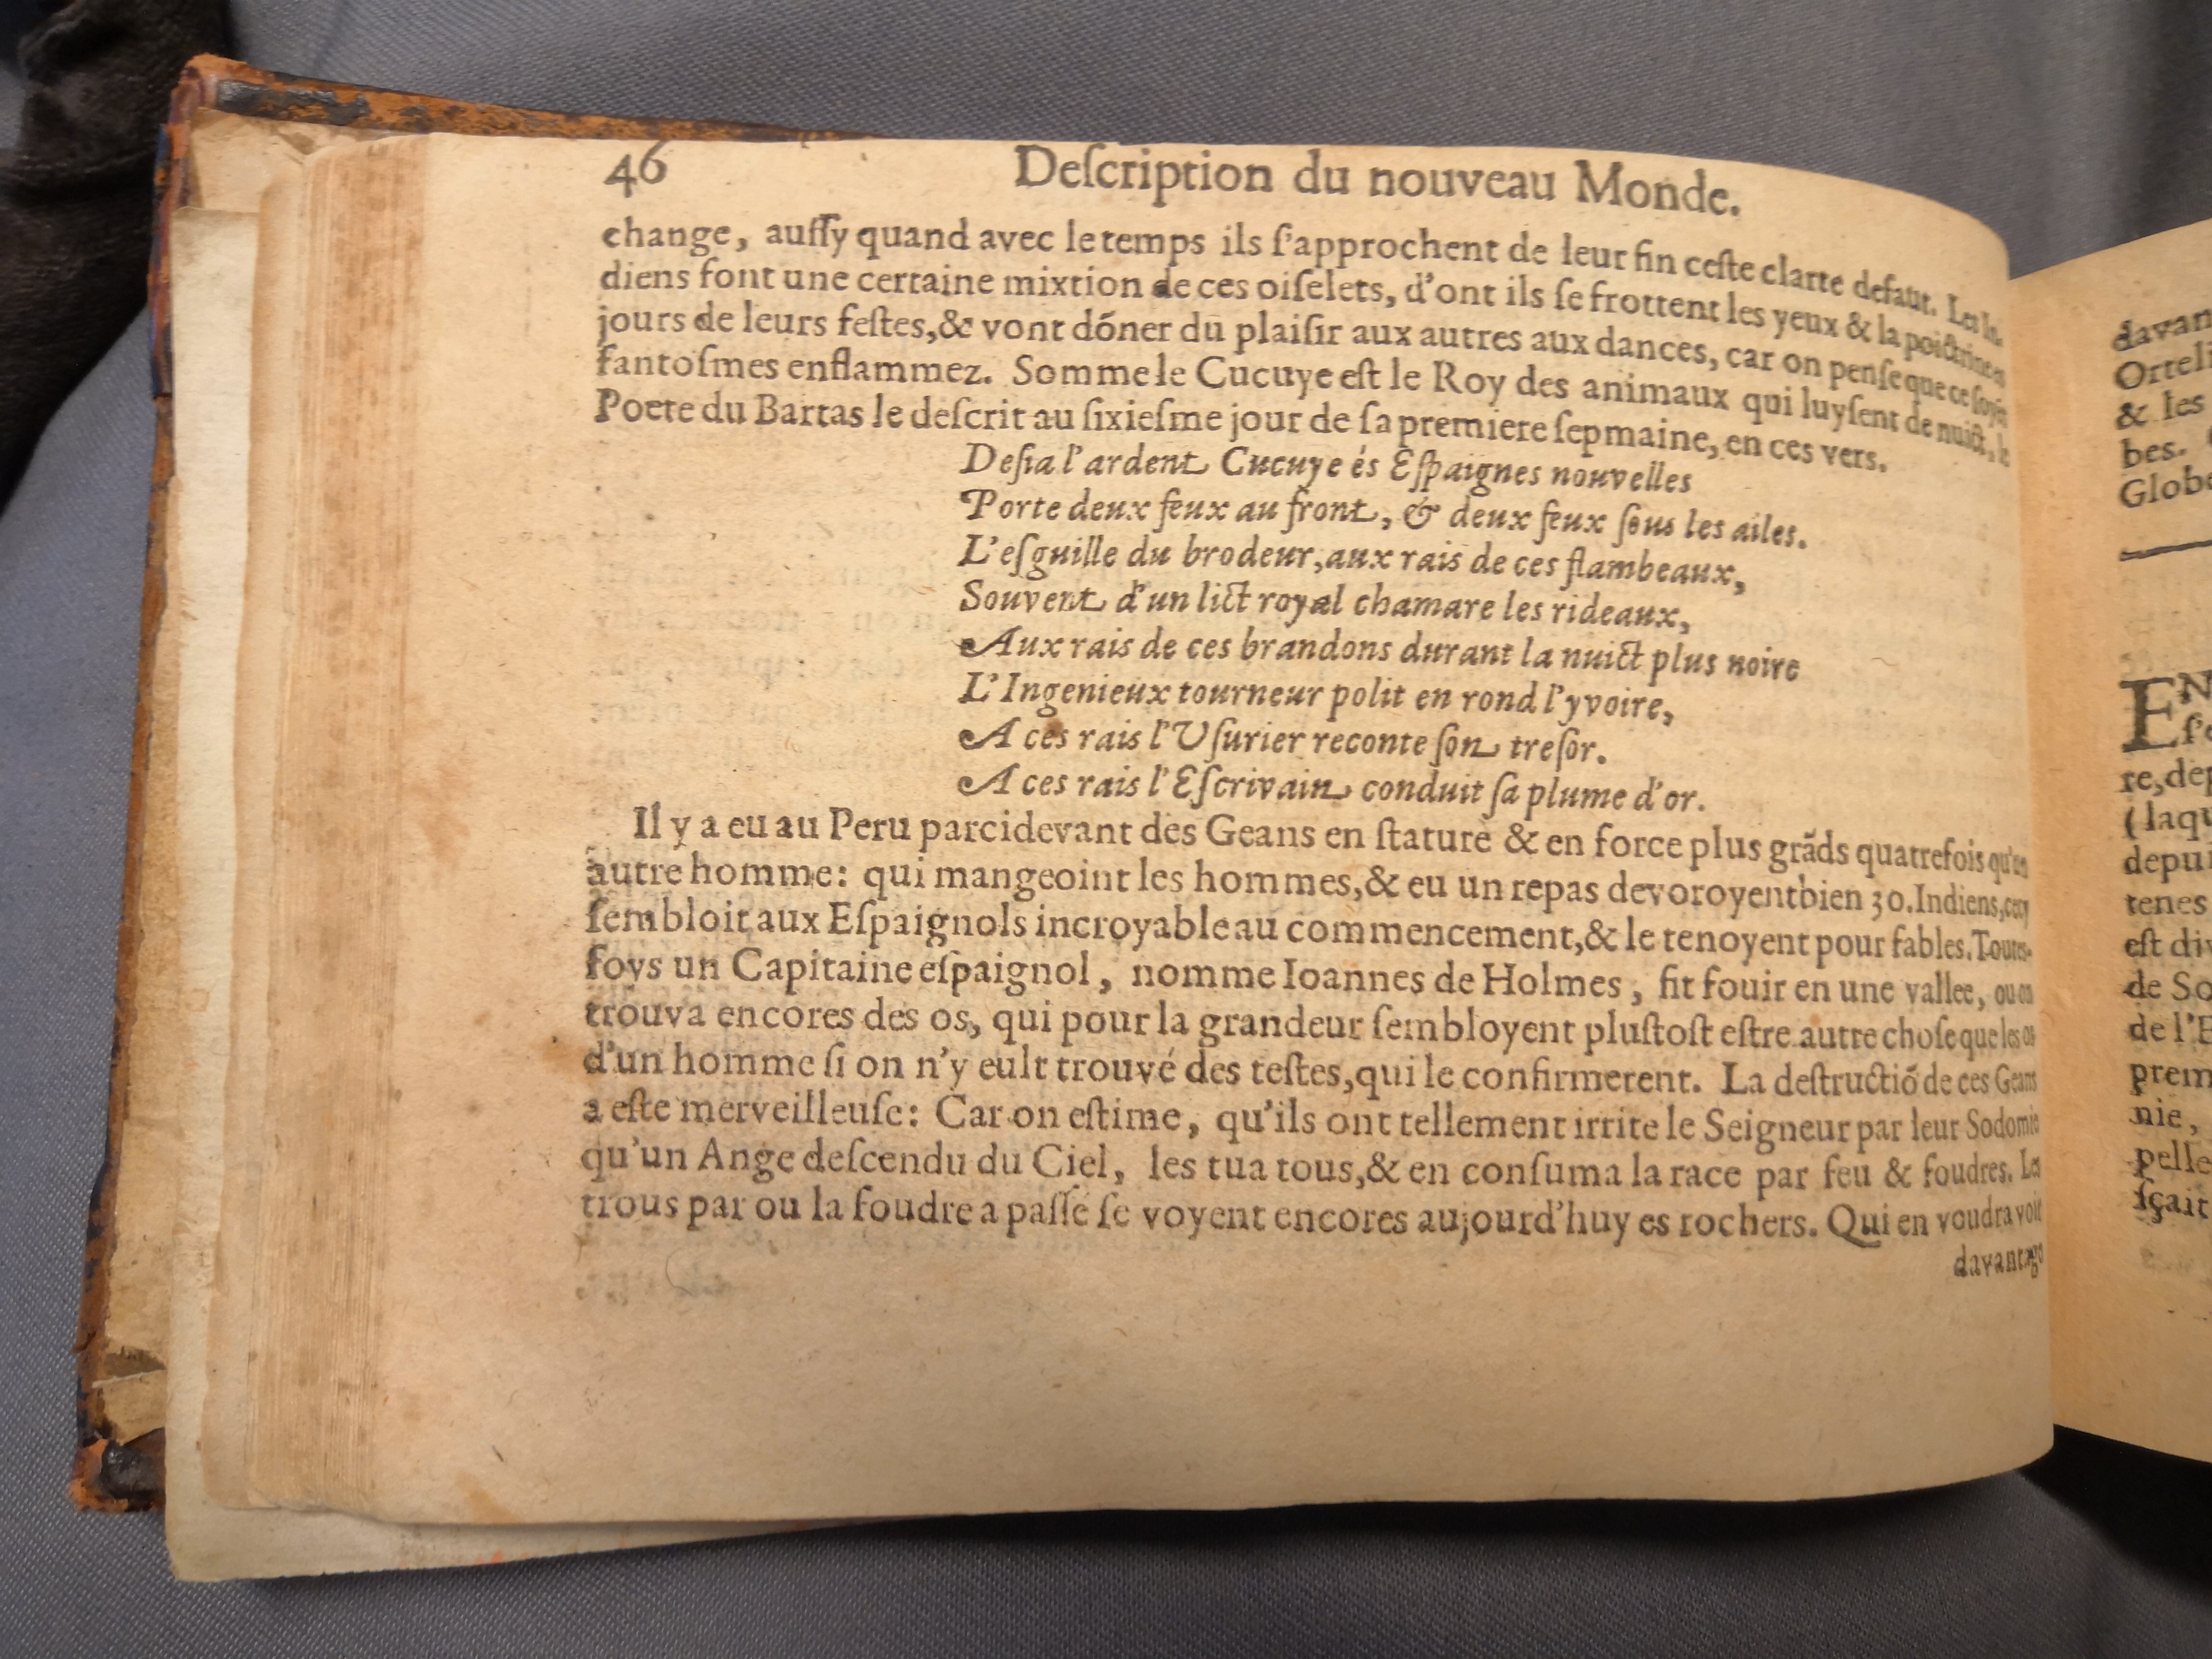 46 Deſcription du nouveau Monde.
change, auſſy quand avec le temps ils ſ'approchent de leur fin ceſte clarte defaut. Les In-
diens font une certaine mixtion de ces oiſelets, d'ont ils ſe frottent les yeux & la poictrine es
jours de leurs feſtes, & vont dóner du plaiſir aux autres aux dances, car on penſe que ce ſoyēt
fantoſmes enflammez. Somme le Cucuye eſt le Roy des animaux qui luyſent de nuict, le
Poete du Bartas le deſcrit au ſixieſme jour de ſa premiere ſepmaine, en ces vers.
Deſia l'ardent Cucuye és Eſpaignes nouvelles
Porte deux feux au front, & deux feux ſous les ailes.
L'eſguille du brodeur, aux rais de ces flambeaux,
Souvent d'un lict royal chamare les rideaux,
Aux rais de ces brandons durant la nuict plus noire
L'Ingenieux tourneur polit en rond l'yvoire,
A ces rais l'Uſurier reconte ſon treſor.
A ces rais l'Eſcrivain conduit ſa plume d'or.
Il y a eu au Peru parcidevant des Geans en ſtature & en force plus grãds quatrefois qu'un
autre homme: qui mangeoint les hommes, & eu un repas devoroyent bien 30. Indiens, cecy
ſembloit aux Eſpaignols incroyable au commencement, & le tenoyent pour fables. Toutes-
foys un Capitaine eſpaignol, nomme Ioannes de Holmes, fit fouir en une vallee, ou on
trouva encores des os, qui pour la grandeur ſembloyent pluſtoſt eſtre autre choſe que les os
d'un homme ſi on n'y eult trouvé des teſtes, qui le confirmerent. La deſtructió de ces Geans
a eſte merveilleuſe: Car on eſtime, qu'ils ont tellement irrite le Seigneur par leur Sodomie
qu'un Ange deſcendu du Ciel, les tua tous, & en conſuma la race par feu & foudres. Les
trous par ou la foudre a paſſé ſe voyent encores aujourd'huy es rochers. Qui en voudra voir
davantage
davan
Orteli
& les
bes.
Globe
EN
re, dep
(laqu
depui
tenes
eſt div
de So
de l'E
prem
nie,
pelle
ſçait